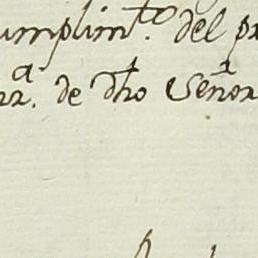 umplimto. del
rra. de dho Señor